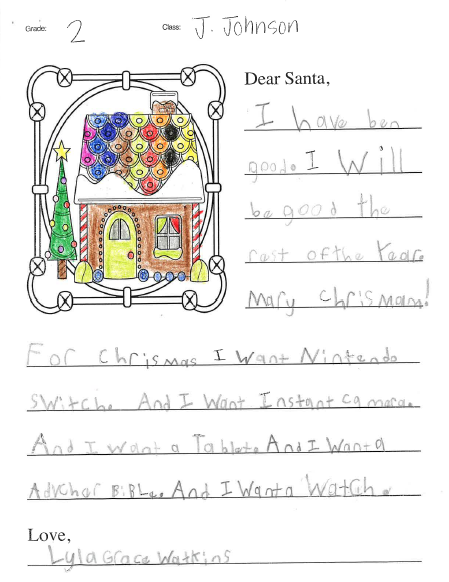 Grade: 2 Class: J. Johnson
Dear Santa,
I have ben
good. I Will
be good the
rest of the Year.
Mary Chrismam!
For Chrismas I Want Nintendo
Switch. And I Want Instant camera.
And I want a Tablet. And I Want a
Advchar BiBLe. And I Want a Watch.
Love,
Lyla Grace Watkins